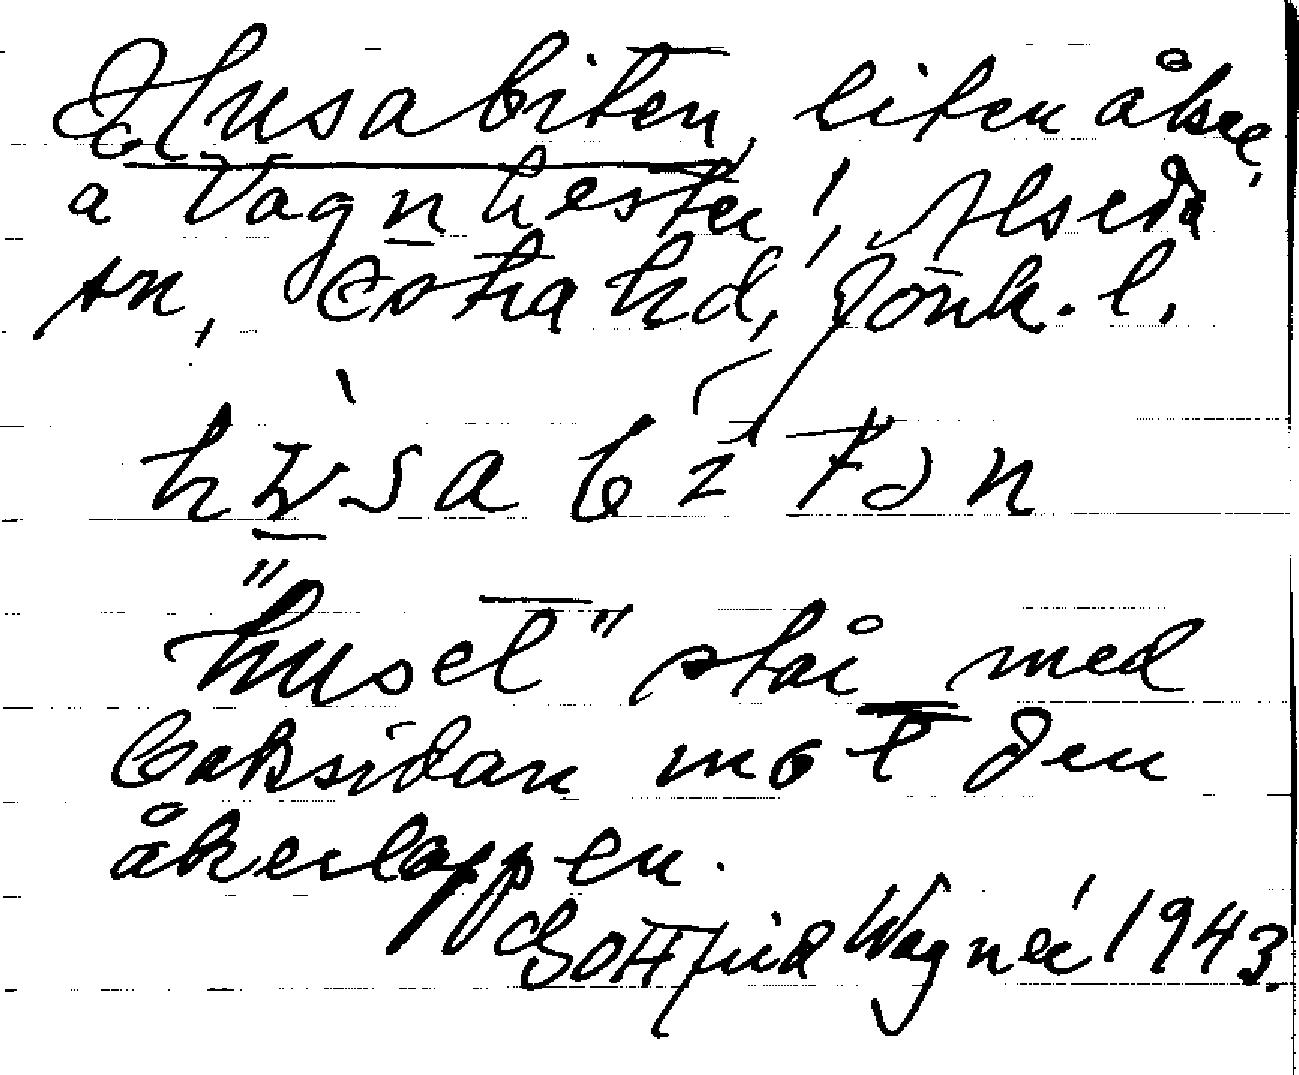 Husabiten, liten åker,
a Vagnhester!, Alseda
sn, Östra hd, Jönk. l.
hùsabítən
"huset" står med
baksidan mot den
åkerlappen.
Gottfrid Wagnér 1943.